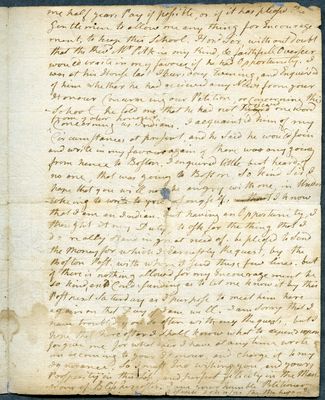 one half years Pay if possible, or if it has pleased the
Gentlemen to allow me any thing for Encourage
ment, to keep this School. Hond Sir, without doubt
that the Revd Mr Polk is my kind & faithfull Overseer
would wrote in my favour if he had Opportunity. I
was at his House last Thursday Evening, and inquired
of him whether he had received any Letter from your
Honour Concerning our Petition, or Concerning the
School. he told me that he had not received one word
from your honour
Concerning the Indians. I acquainted him of my
Circumstances at present and he said he would join
and write in my favour again if there was any going
from hence to Boston. I enquired little but heard of
no one that was going to Boston. So kind Sir, I
hope that you will not be angry with me, in Under
taking to write to you for myself. I know
that I am an Indian but having an Opportunity, I
thought it my Duty to ask for the thing that I
really stand in great need of. be pleased to send
the Money for which I earnestly Request by the
Boston Post, with whom I send these few lines. but
if there is nothing allowed for my Encouragement be
so kind and Condesending as to let me know it by this
Post next Saturday as I purpose to meet him here
again on that Day if I am well. I am sorry that I
have troubled you so often with my Request, but I
hope that hereafter I shall know what to depend upon
forgive Sir for what ever I have at any time wrote
un becoming to your Honour and charge it to my
ignorance. So I must End wishing you and yours
Prosperity in this Life and perfect felicity in the Man
sions of Blessedness. I am your humble Petitioner